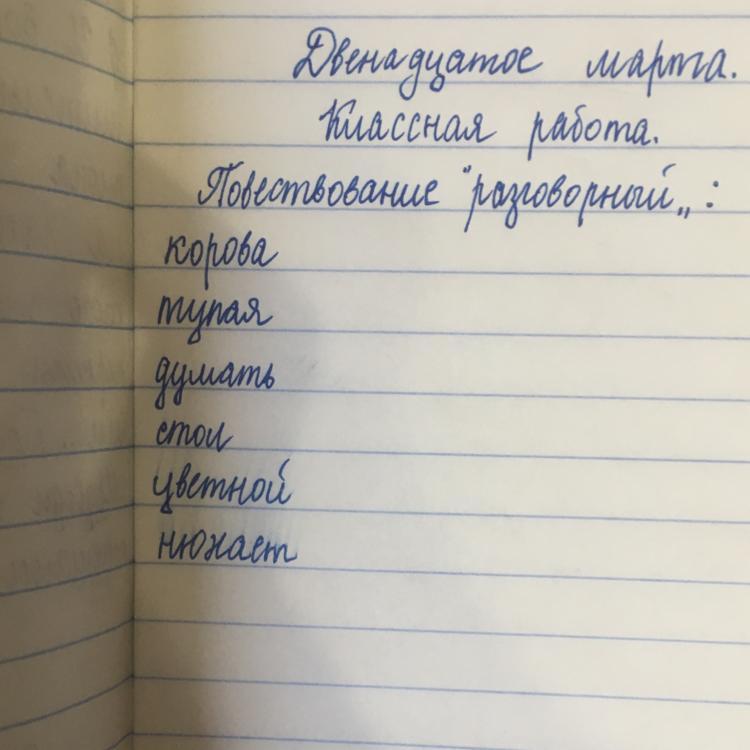 Двенадцатое марта.
Классная работа.
Повествование "разговорный„:
корова
тупая
думать
стол
цветной
нюхает